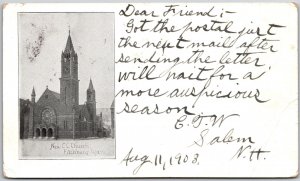 Dear Friend :-
Got the postal just
the next mail after
sending the letter
will wait for a
more auspicious
season
E. D. W
Salem
Aug 11, 1903. N.H.
Church